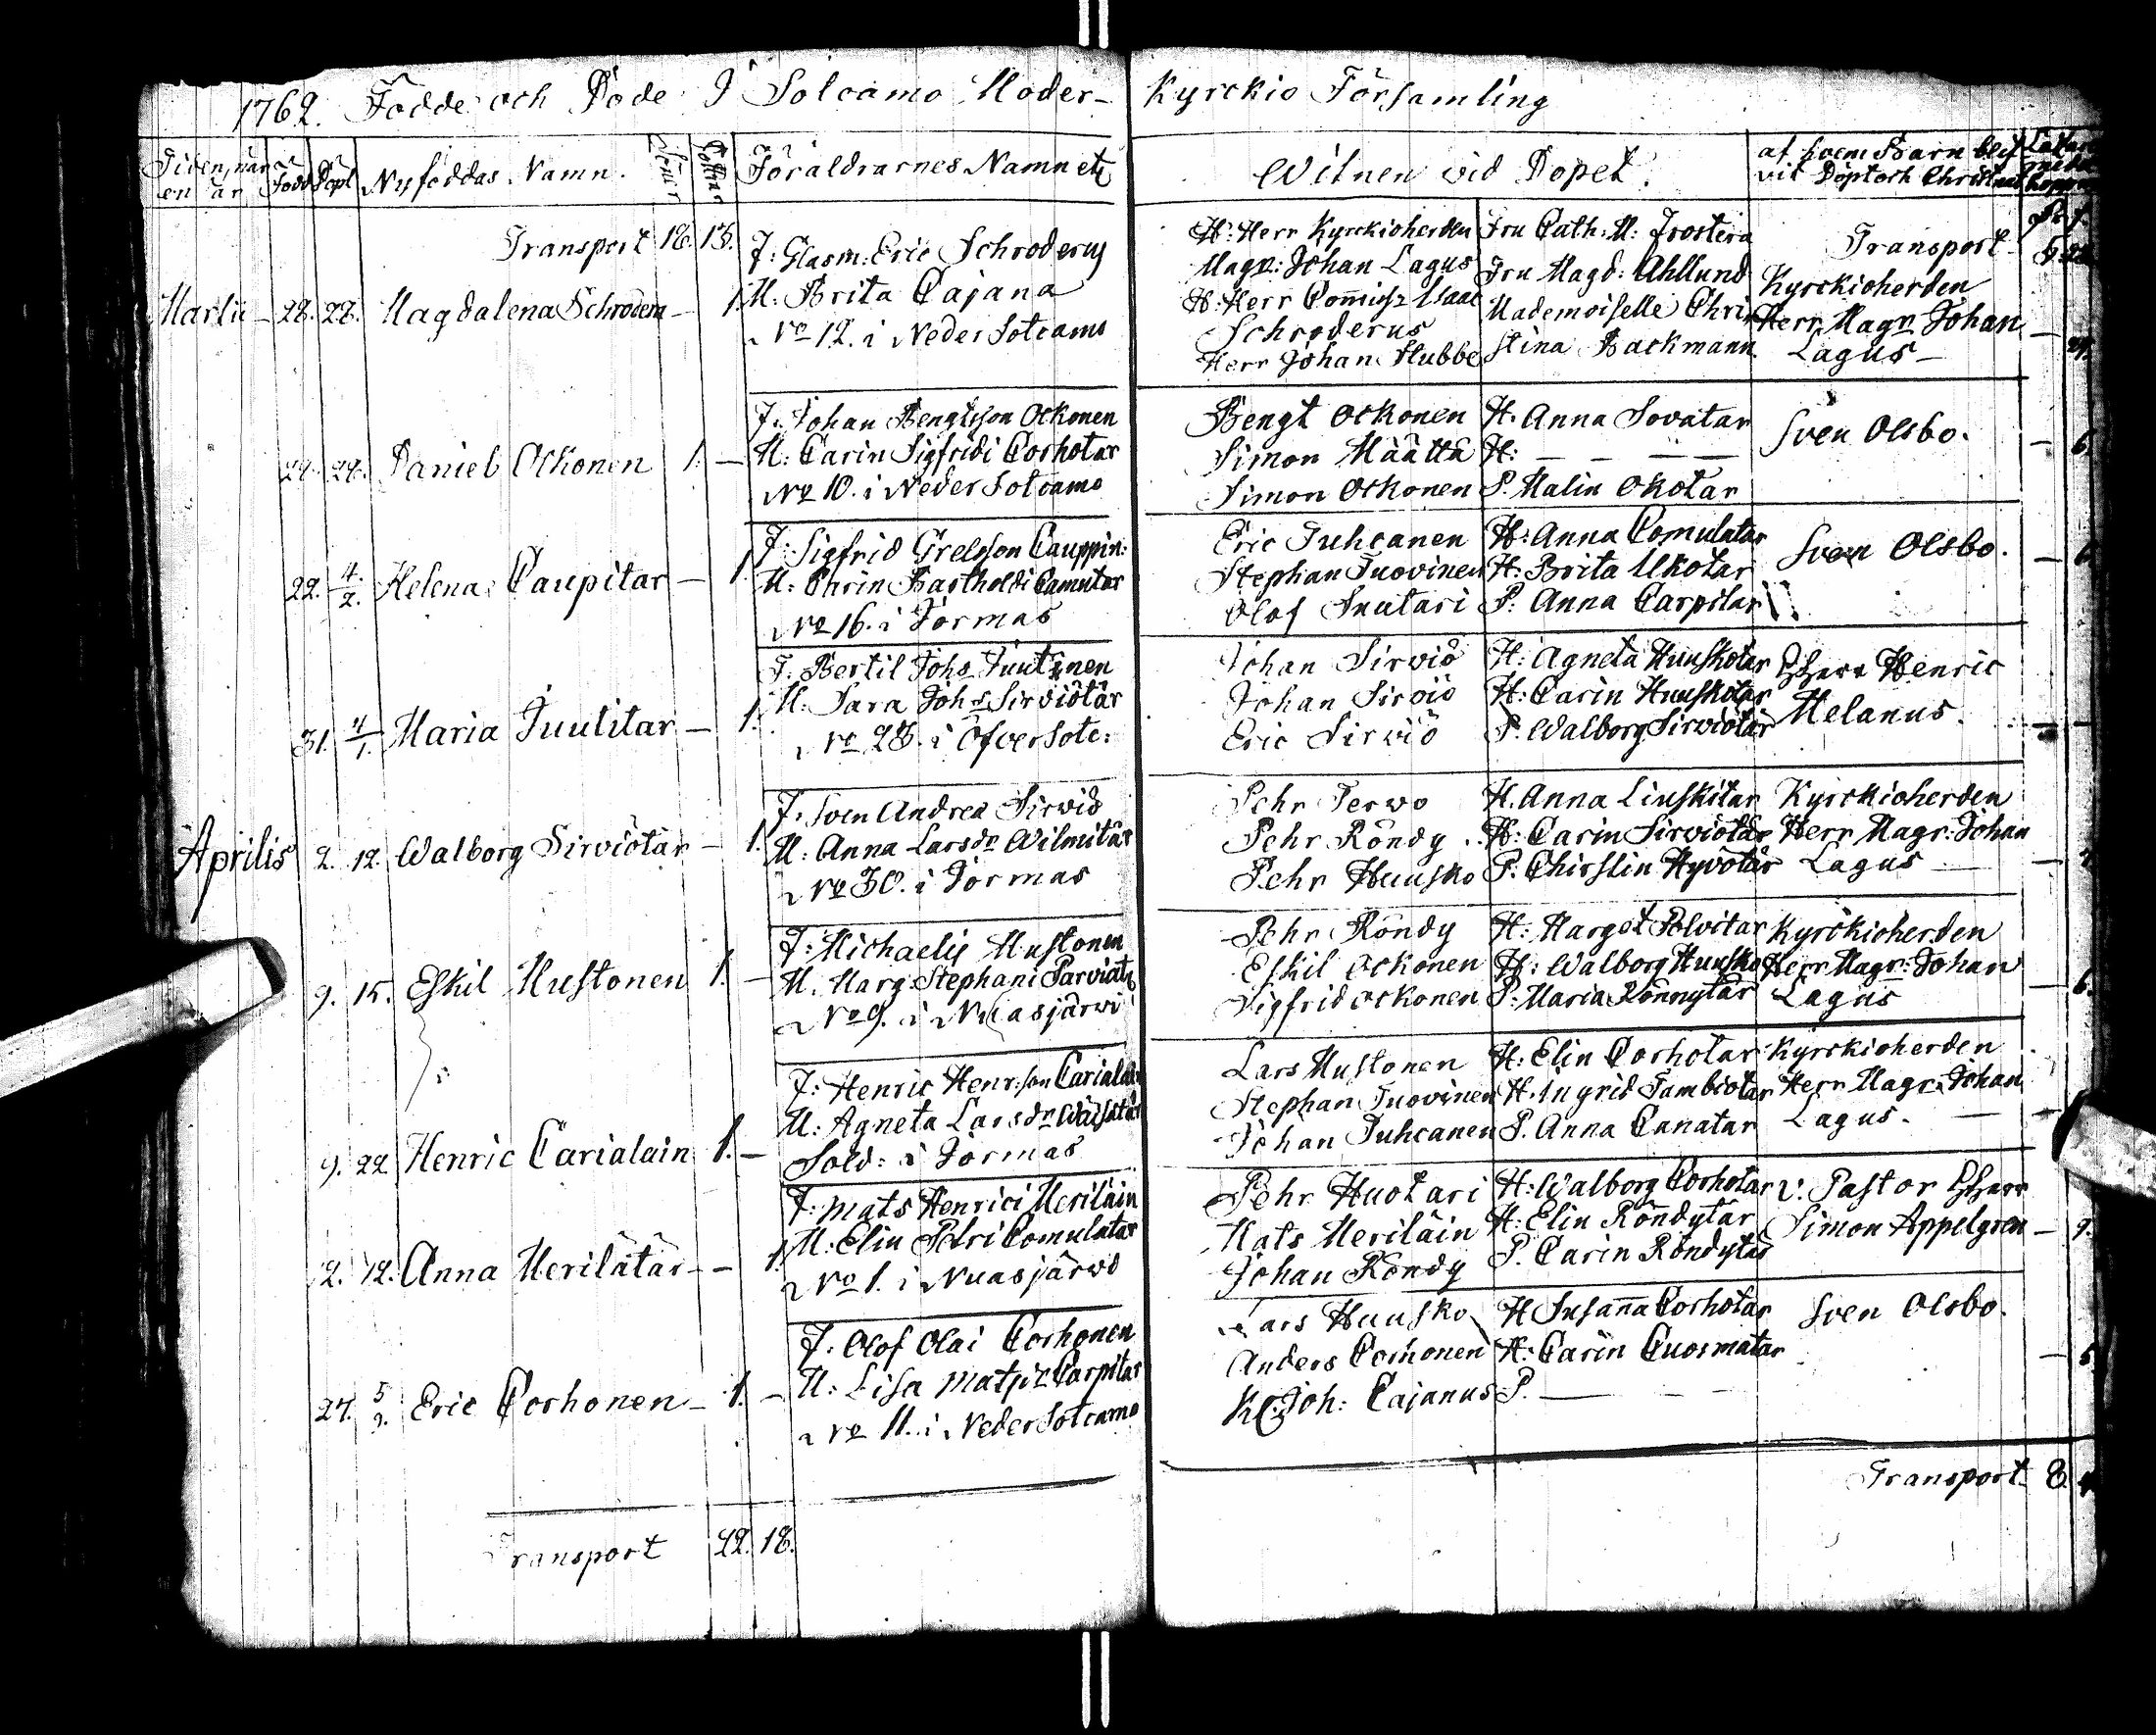 1762. Födde och Döde I Sotcamo Moder-
Kyrckio Församling
Född Döpt Nyföddas Namn. Söner Föräldrarnes Namn etc
Witnen vid Dopet.
af hvem Barn blif
vit Döpt och Christnat
Transport 18. 13.
Martii - 28. 28. Magdalena Schrodera - 1.
F: Glasm: Eric Schroderus
M: Brita Cajana
No 12. i Neder Sotcamo
H: Herr Kyrckioherden
Magr: Johan Lagus
Schroderus
Herr Johan Stubbe
Fru Cath: M: Frostera
Fru Magd: Ahllund
Mademoiselle Chri
stina Backmann
Transport
Kyrckioherden
Herr Magr Johan
Lagus -
29. 29. Daniel Ockonen 1. -
F: Johan Bengtsson Ockonen
M: Carin Sigfridi Corhotar
No 10. i Neder Sotcamo
Bengt Ockonen
Simon Määttä
Simon Ockonen
H: Anna Sovatar
H: - - - -
P. Malin Okotar
Sven Olsbo. - 6.
22. 4/2. Helena Caupitar - 1.
F: Sigfrid Grelsson Cauppin:
M: Chrin Bartholdi Camutar
No 16. i Jormas
Eric Juhcanen
Stephan Tuovinen
Olof Suutari
H: Anna Comulatar
H: Brita Ukotar
P: Anna Carpitar
Sven Olsbo. - 6.
31. 4/1. Maria Juutitar - 1.
F: Bertil Johs Juutinen
M: Sara Johs Sirviötär
No 23. i Öfversotc:
Johan Sirviö
Johan Sirviö
Eric Sirviö
H: Agneta Huuskotar
H: Carin Huuskotar
P. Walborg Sirviötär
Henric
Melanus.
Aprilis 2. 12. Walborg Sirviötär - 1.
F: Sven Andrea Sirviö
M: Anna Larsdr Wilmitär
No 30. i Jormas
Pehr Terwo
Pehr Röndy
Pehr Huusko
H. Anna Liuskitar
H: Carin Sirviötär
P. Chirstin Hyvotär
Kyrckioherden
Herr Magr: Johan
Lagus -
9. 15. Eskil Mustonen 1. -
F: Michaelis Mustonen
M. Marg: Stephani Parviat:
No 9. i Nuasjärwi
Pehr Röndy
Eskil Ockonen
Sigfrid Ockonen
H: Marget Polvitar
H: Walborg Huusko
P: Maria Rönnytär
Kyrckioherden
Herr Magr: Johan
Lagus - 6.
9. 22 Henric Carialain 1. -
F: Henric Henr:son Carialain
M: Agneta Larsdr
Sold: i Jormas
Lars Mustonen
Stephan Tuovinen
Johan Juhcanen
H: Elin Corhotar
H. Ingrid Tambiotar
P. Anna Canatar
Kyrckioherden
Herr Magr: Johan
Lagus. -
12. 12. Anna Merilätär - - 1.
F: Mats Henrici Meriläin
M: Elin Petri Comulatar
No 1. i Nuasjärwi
Pehr Huotari
Mats Meriläin
Johan Röndy
H: Walborg Corhotar
H: Elin Röndytär
P. Carin Röndytär
v. Pastor
Simon Appelgren - 9.
27. 5/9. Eric Corhonen - 1. -
F: Olof Olai Corhonen
M: Lisa Carpitar
No 11. i Neder Sotcamo
Lars Huusko
Anders Corhonen
Joh: Cajanus
H Susanna Corhotar
H: Carin Cuosmatar
P. - -
Sven Olsbo.
Transport 8.
Transport 22. 18.